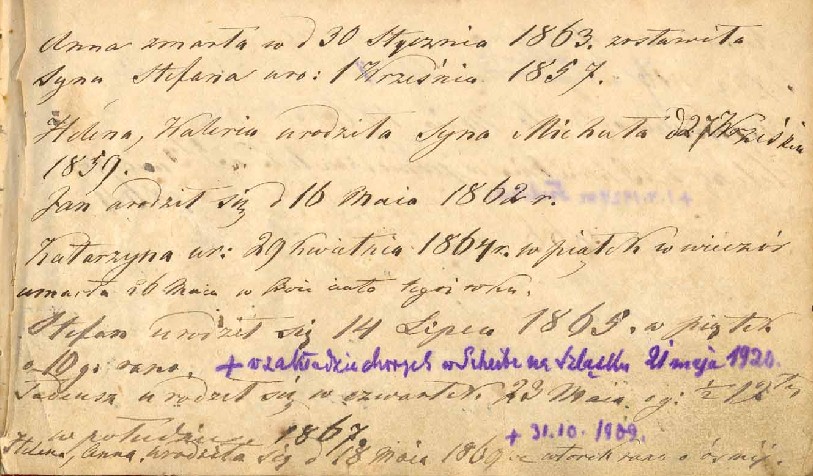 Anna zmarła w d 30 Stycznia 1863. zostawiła
Syna Stefana uro: 1 Września 1857.
Helena, Waleria urodziła Syna Michała d 27 Września
1859.
Jan urodził się d 16 Maia 1862 r.
Katarzyna ur: 29 kwietnia 1864 r. w piątek w wieczór
umarła 26 Maia w Boże ciało tegoż roku.
Stefan urodził się 14 Lipca 1865. w piątek
o 10 g: rano. + w zakładzie chorych w Scheibe na Szląsku 21 maja 1920.
Tadeusz urodził się w czwartek 23 Maia o g: ½ 12
w południe 1867. + 31.10.1909.
Helena, Anna urodziła się d 18 Maia 1869 we wtorek rano o ósmij.